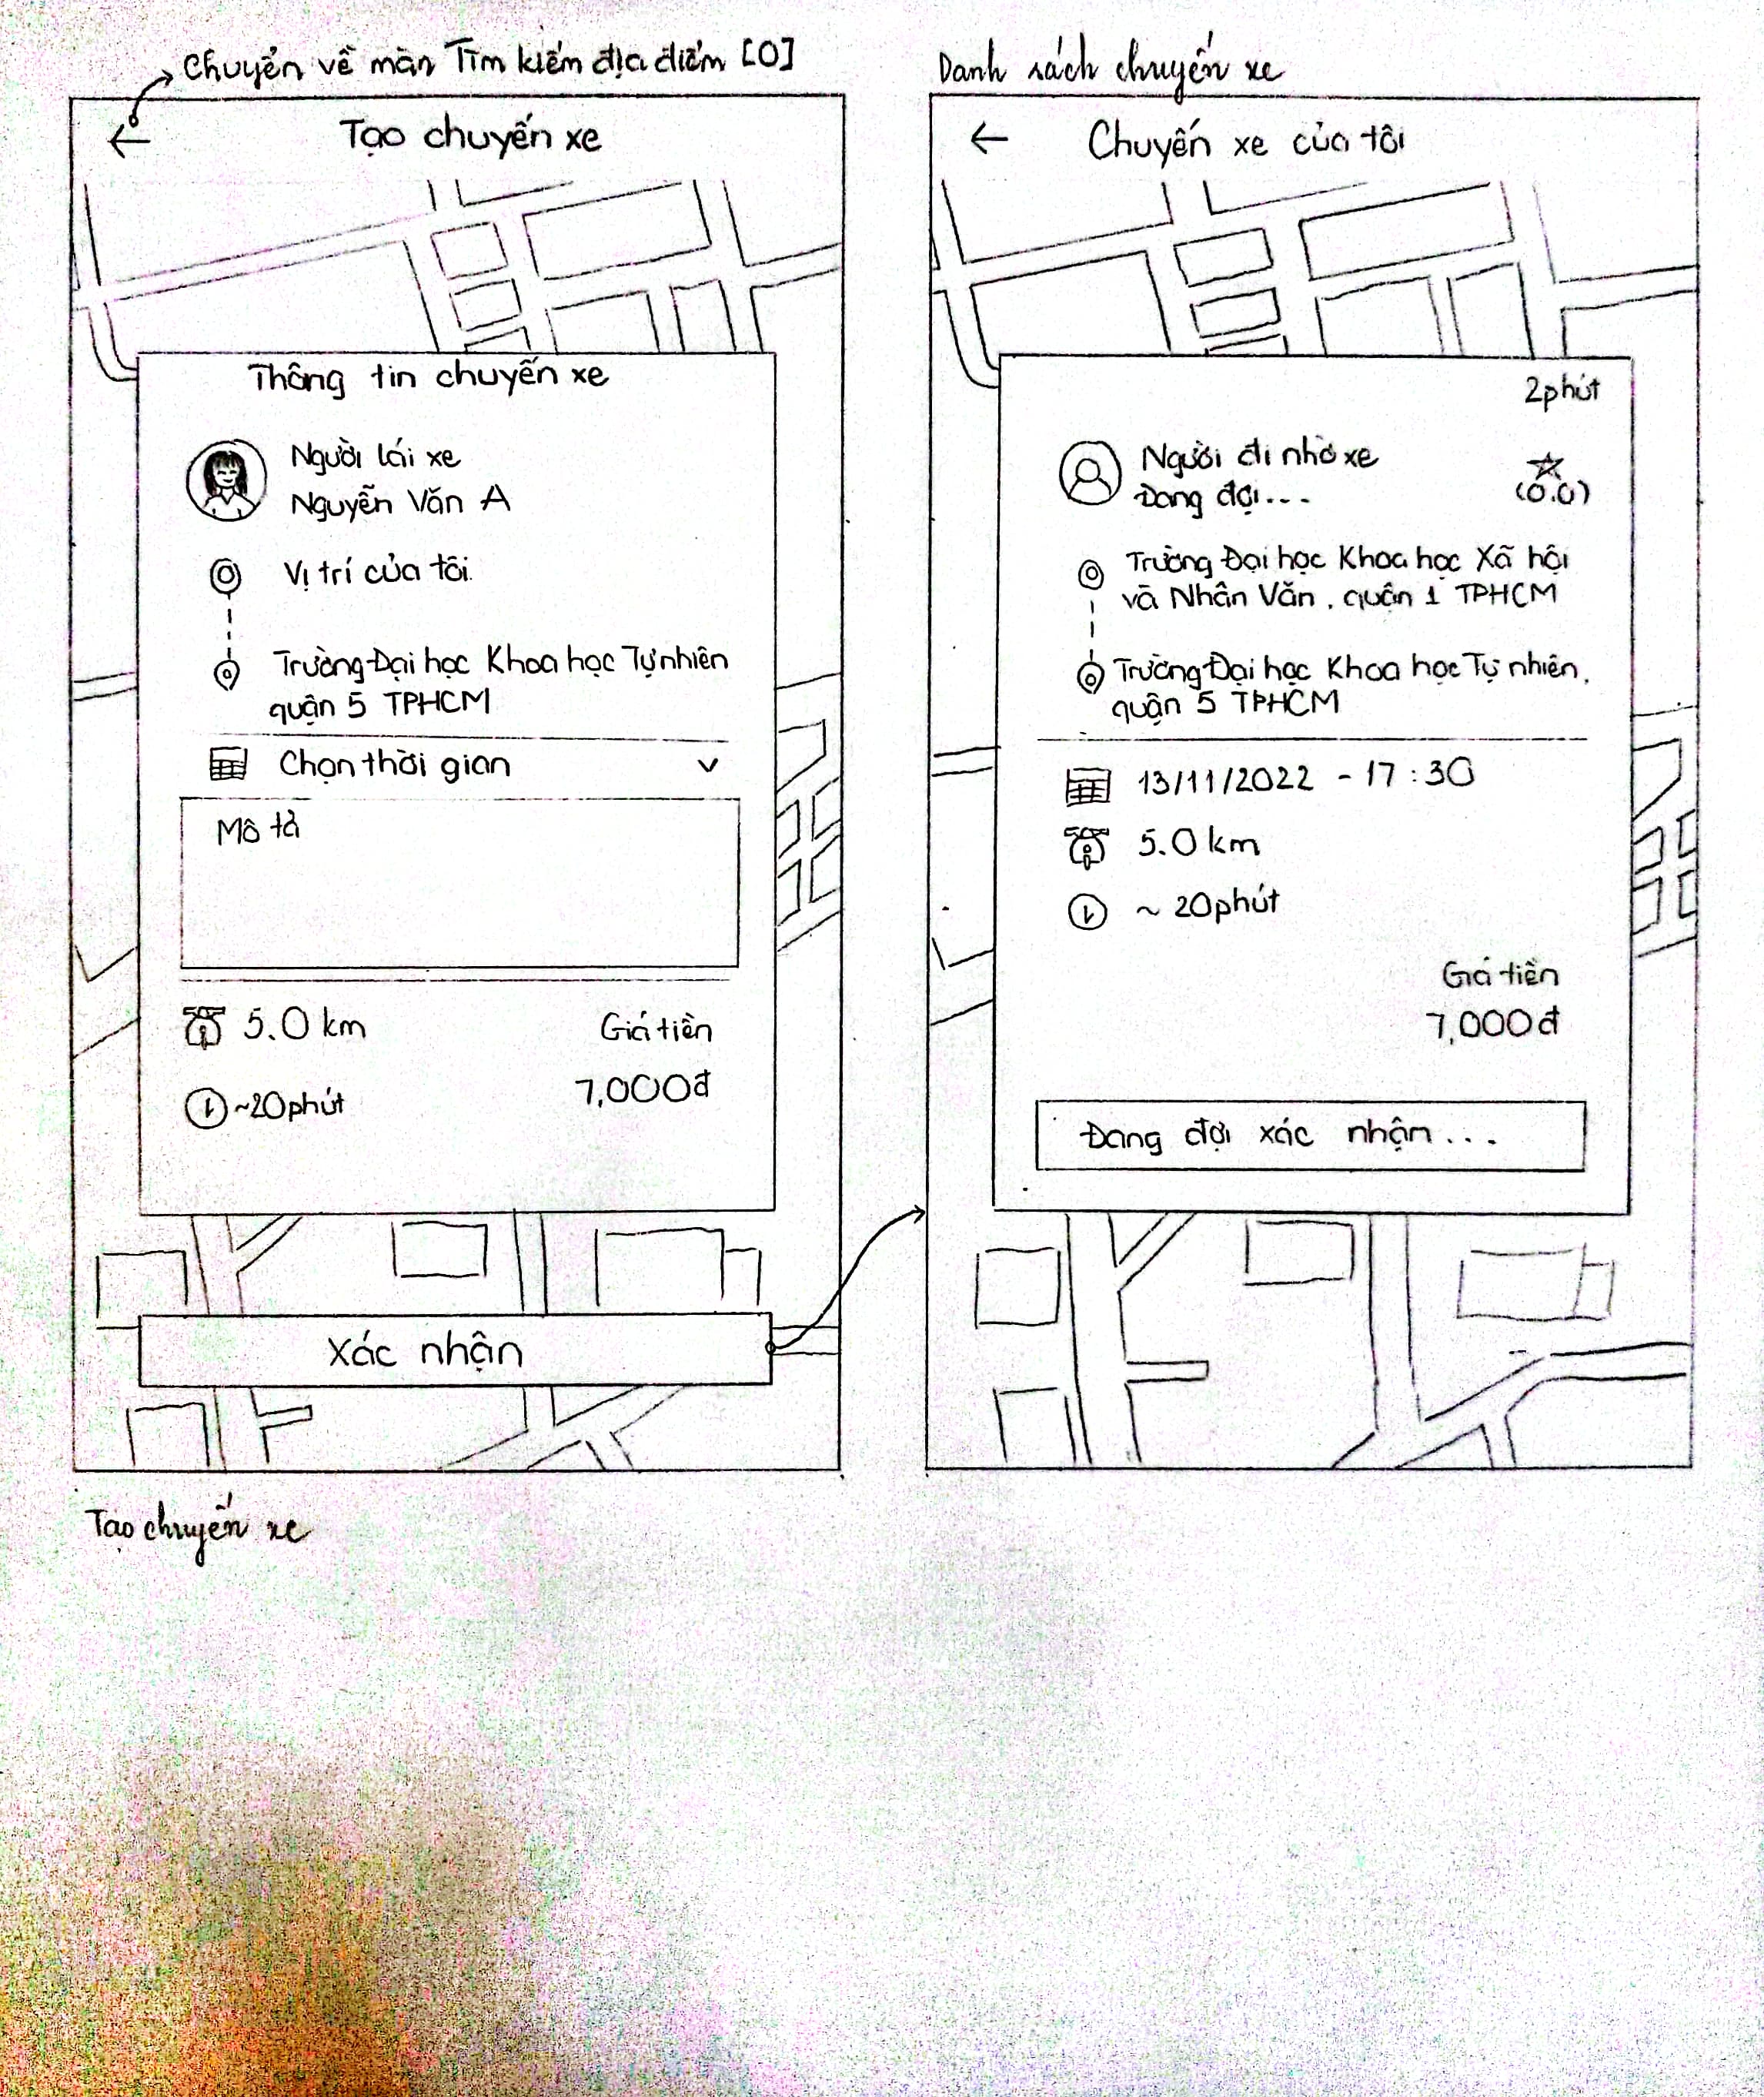 Chuyển về màn Tìm kiếm địa điểm [0]
Tạo chuyến xe
Thông tin chuyến xe
Người lái xe
Nguyễn Văn A
Vị trí của tôi
Trường Đại học Khoa học Tự nhiên
quận 5 TPHCM
Chọn thời gian
Mô tả
5.0 km
Giá tiền
~20 phút
7,000đ
Xác nhận
Tạo chuyến xe
Danh sách chuyến xe
Chuyến xe của tôi
2 phút
Người đi nhờ xe
Đang đợi...
(0.0)
Trường Đại học Khoa học Xã hội
và Nhân Văn, quận 1 TPHCM
Trường Đại học Khoa học Tự nhiên,
quận 5 TPHCM
13/11/2022 - 17:30
5.0 km
~ 20 phút
Giá tiền
7,000đ
Đang đợi xác nhận...